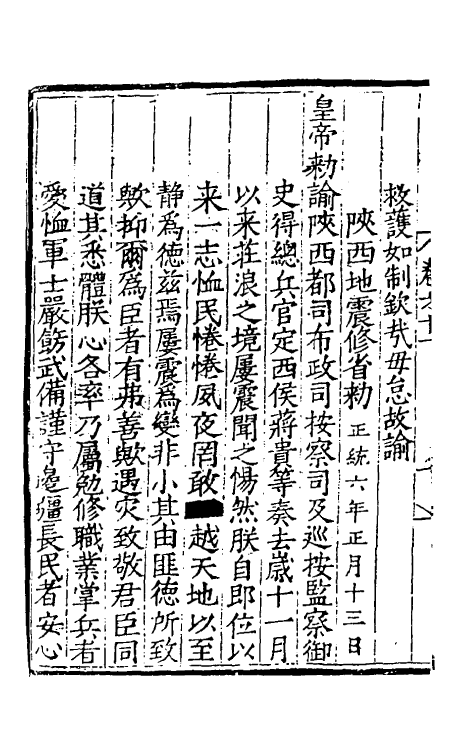 救護如制欽哉毋怠故諭
陝西地震修省勑 正統六年正月十三日
皇帝勑諭陝西都司布政司按察司及巡按監察御
史得總兵官定西侯蔣貴等奏去歲十一月
以来荘浪之境屢震聞之惕然朕自即位以
来一志恤民惓惓夙夜罔敢越天地以至
静為徳兹焉屢震為變非小其由匪徳所致
歟抑爾為臣者有弗善歟遇灾致敬君臣同
道其悉體朕心各率乃屬勉修職業掌兵者
愛恤軍士嚴飭武備謹守邊疆長民者安心